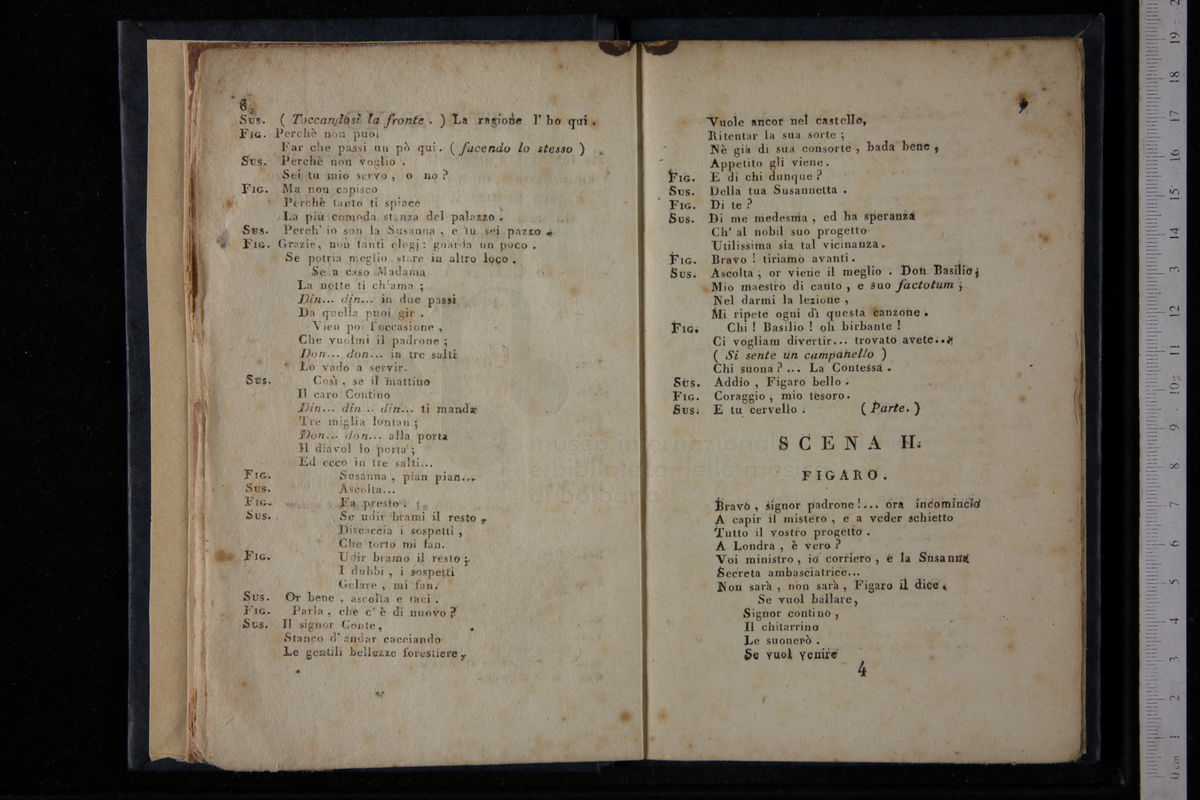 6
Sus. ( Toccandosi la fronte . ) La ragione l' ho qui .
Fig. Perchè non puoi
Far che passi un pò qui. ( facendo lo stesso )
Sus. Perchè non voglio .
Sei tu mio servo , o no ?
Fig. Ma non capisco
Perchè tanto ti spiace
La piu comoda stanza del palazzo .
Sus. Perch' io son la Susanna , e tu sei pazzo .
Fig. Grazie, non tanti elogj : guarda un poco .
Se potria meglio stare in altro loco .
Se a caso Madama
La notte ti chiama ;
Din... din... in due passi
Da quella puoi gir .
Vien poi l'occasione ,
Che vuolmi il padrone ;
Don... don... in tre salti
Lo vado a servir.
Sus. Così , se il mattino
Il caro Contino
Din... din... din... ti manda
Tre miglia lontan ;
Don... don... alla porta
Il diavol lo porta ;
Ed ecco in tre salti...
Fig. Susanna , pian pian...
Sus. Ascolta...
Fig. Fa presto .
Sus. Se udir brami il resto ,
Discaccia i sospetti ,
Che torto mi fan.
Fig. Udir bramo il resto ;
I dubbi , i sospetti
Gelare , mi fan.
Sus. Or bene , ascolta e taci .
Fig. Parla , che c' è di nuovo ?
Sus. Il signor Conte,
Stanco d' andar cacciando
Le gentili bellezze forestiere ,
Vuole ancor nel castello,
Ritentar la sua sorte ;
Nè già di sua consorte , bada bene ,
Appetito gli viene .
Fig. E di chi dunque ?
Sus. Della tua Susannetta .
Fig. Di te ?
Sus. Di me medesma , ed ha speranza
Ch' al nobil suo progetto
Utilissima sia tal vicinanza .
Fig. Bravo ! tiriamo avanti .
Sus. Ascolta , or viene il meglio . Don Basilio ;
Mio maestro di canto , e suo factotum ;
Nel darmi la lezione ,
Mi ripete ogni dì questa canzone .
Fig. Chi ! Basilio ! oh birbante !
Ci vogliam divertir... trovato avete...
( Si sente un campanello )
Chi suona ? ... La Contessa .
Sus. Addio , Figaro bello .
Fig. Coraggio , mio tesoro .
Sus. E tu cervello . ( Parte. )
SCENA II.
FIGARO .
Bravo , signor padrone !... ora incomincio
A capir il mistero , e a veder schietto
Tutto il vostro progetto .
A Londra , è vero ?
Voi ministro , io corriero , e la Susanna
Secreta ambasciatrice...
Non sarà , non sarà , Figaro il dice .
Se vuol ballare ,
Signor contino ,
Il chitarrino
Le suonerò .
Se vuol venire
4
museo internazionale
e biblioteca della musica
di bologna